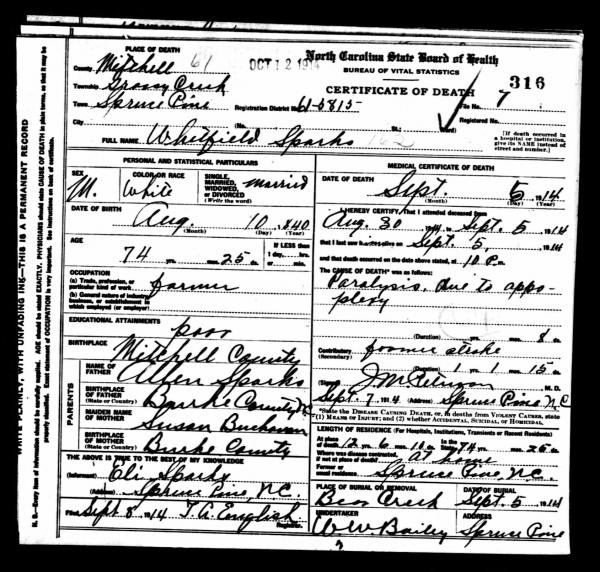 PLACE OF DEATH
County Mitchell 61
OCT 12 1914
North Carolina State Board of Health
BUREAU OF VITAL STATISTICS
CERTIFICATE OF DEATH
316
Township Grassy Creek
Town Spruce Pine
Registration District No. 61-5815
File No. 7
City
St.;
Ward)
Registered No.
[If death occurred in a hospital or institution, give its NAME instead of street and number.]
FULL NAME Whitfield Sparks 162
PERSONAL AND STATISTICAL PARTICULARS
SEX
M.
COLOR OR RACE
White
SINGLE, MARRIED, WIDOWED, OR DIVORCED
(Write the word)
married
DATE OF BIRTH
Aug. 10 1840
(Month) (Day) (Year)
AGE
74 mos. 25 ds.
If LESS than
1 day, hrs.
or min.
OCCUPATION
(a) Trade, profession, or particular kind of work
farmer
(b) General nature of industry, business, or establishment in which employed (or employer)
EDUCATIONAL ATTAINMENTS
poor
BIRTHPLACE
Mitchell County
PARENTS
NAME OF FATHER
Allen Sparks
BIRTHPLACE OF FATHER
Burke County NC
MAIDEN NAME OF MOTHER
Susan Buchanan
BIRTHPLACE OF MOTHER
Burke County
THE ABOVE IS TRUE TO THE BEST OF MY KNOWLEDGE
(Informant) Eli Sparks
(Address) Spruce Pine, N.C.
Filed Sept 8 1914 T. A. English
Registrar
MEDICAL CERTIFICATE OF DEATH
DATE OF DEATH
Sept. 5 1914
(Month) (Day) (Year)
I HEREBY CERTIFY, That I attended deceased from
Aug 30 191 to Sept. 5 1914
that I last saw alive on Sept. 5, 1914
and that death occurred on the date above stated, at 10 P.m.
The CAUSE OF DEATH* was as follows:
Paralysis, due to appo-
plexy
(Duration) yrs. mos. 8 ds.
Contributory former stroke
(Secondary)
(Duration) 1 yrs. 1 mos. 15 ds.
(Signed) M. D.
Sept. 7. 1914 (Address) Spruce Pine, N.C.
*State the DISEASE CAUSING DEATH, or, in deaths from VIOLENT CAUSES, state
(1) MEANS OF INJURY; and (2) whether ACCIDENTAL, SUICIDAL, or HOMICIDAL.
LENGTH OF RESIDENCE (For Hospitals, Institutions, Transients or Recent Residents)
At place of death 12 yrs. 6 mos. ds. In the State 74 yrs. mos. 25 ds.
Where was disease contracted, if not at place of death? At home
Former or usual residence Spruce Pine, N.C.
PLACE OF BURIAL OR REMOVAL
Bear Creek
DATE OF BURIAL
Sept. 5 1914
UNDERTAKER
W. W. Bailey
ADDRESS
Spruce Pine
WRITE PLAINLY, WITH UNFADING INK—THIS IS A PERMANENT RECORD
N. B.—Every item of information should be carefully supplied. AGE should be stated EXACTLY. PHYSICIANS should state CAUSE OF DEATH in plain terms, so that it may be properly classified. Exact statement of OCCUPATION is very important. See instructions on back of certificate.